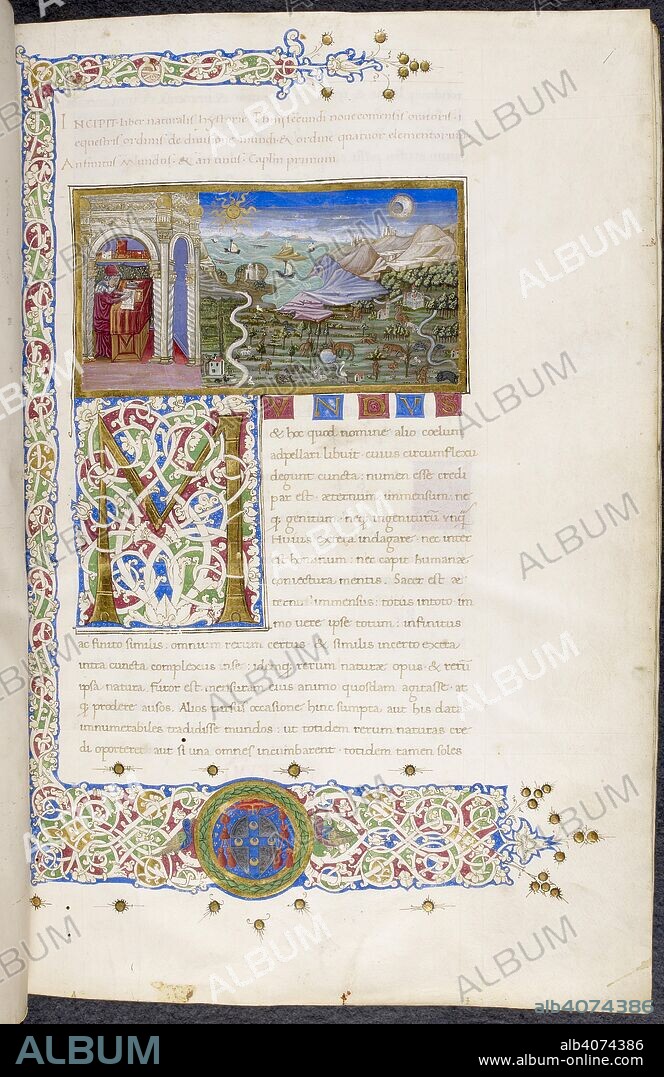 INCIPIT liber naturalis hystorie Plinii secundi novocomensis oratoris
equestris ordinis de divisione mundi & ordine quatuor elementorum
An finitus Mundus & an unus Caplm primum
M
VNDVS
& hoc quod nomine alio coelum
adpellari libuit cuius circumflexu
degunt cuncta: numen esse credi
par est aeternum immensum ne
q; genitum neq; ingeniturū unq̄
Huius extera indagare nec inter
est hominum nec capit humanae
coniectura mentis. Sacer est ae
ternus immensus: totus in toto im
mo vere ipse totum: infinitus
ac finito similis: omnium rerum certus & similis incerto extera
intra cuncta complexus in se: idemq; rerum naturae opus & rerū
ipsa natura. Furor est mensuram eius animo quosdam agitasse at
q; prodere ausos. Alios rursus occasione hinc sumpta aut his data
innumerabiles tradidisse mundos: ut totidem rerum naturas cre
di oporteret aut si una omnes incumbarent totidem tamen soles
ALBUM
alb4074386
ALBUM
alb4074386
www.album-online.com